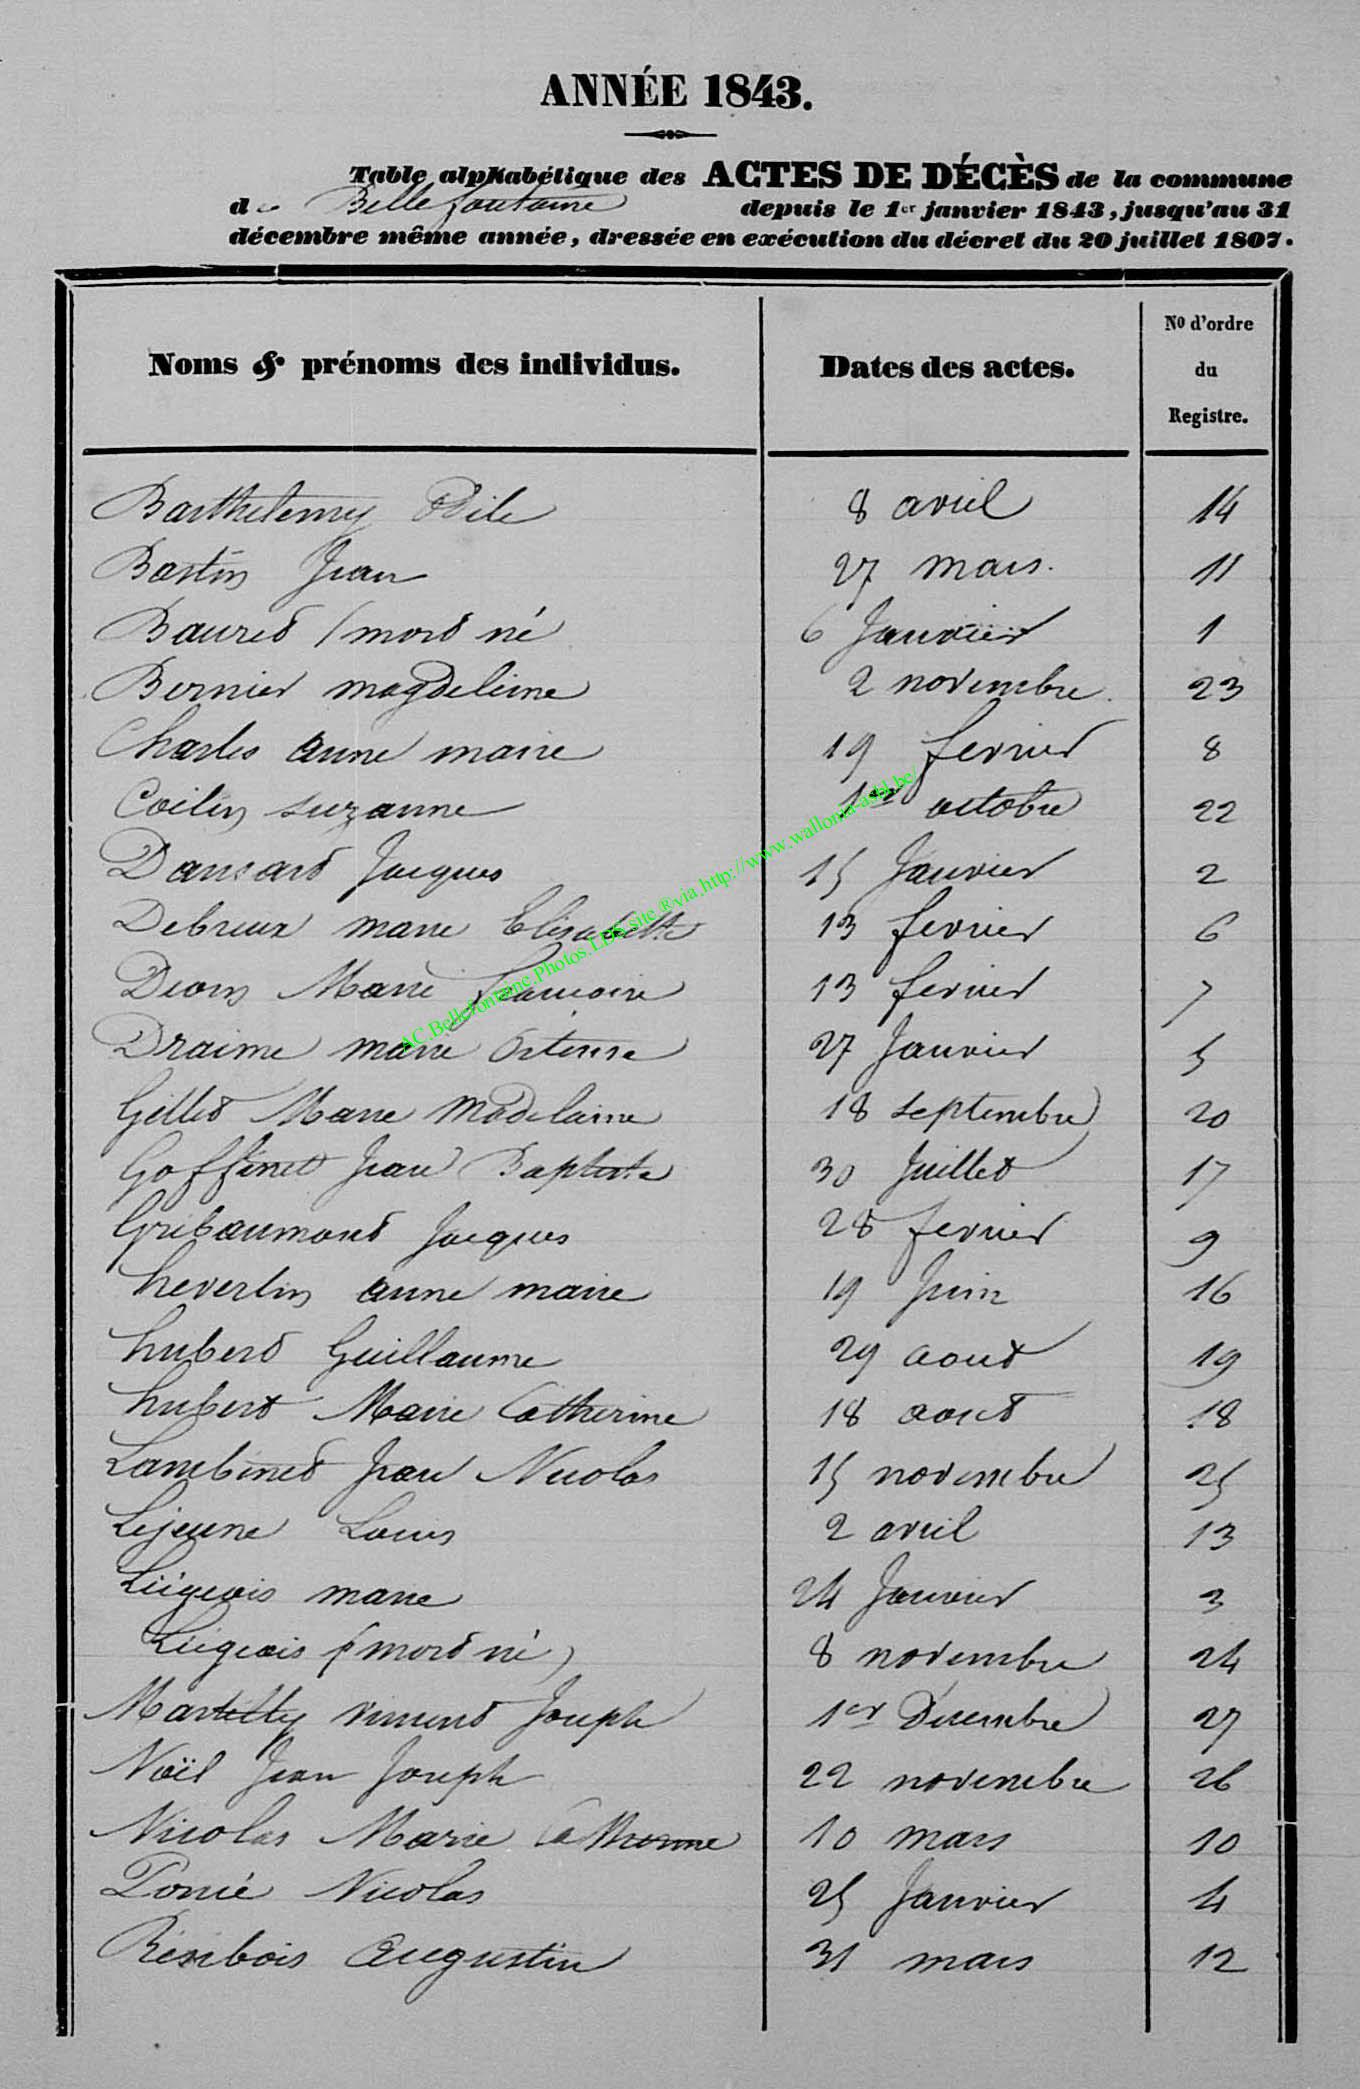 ANNÉE 1843.
Table alphabétique des ACTES DE DÉCÈS de la commune
de Bellefontaine depuis le 1er janvier 1843, jusqu'au 31
décembre même année, dressée en exécution du décret du 20 juillet 1807.
Noms & prénoms des individus. Dates des actes. No d'ordre du Registre.
Barthelemy Odile 8 avril 14
Bastin Jean 27 mars. 11
Bauret (mort né 6 Janvier 1
Bernier magdeleine 2 novembre. 23
Charles anne marie 19 fevrier 8
Collin suzanne 1er octobre 22
Dansart Jacques 15 Janvier 2
Debreux marie Elisabeth 13 fevrier 6
Dion Marie francoise 13 fevrier 7
Draime marie Ortense 27 Janvier 5
Gillet Marie Madelaine 18 septembre 20
Goffinet Jean Baptiste 30 Juillet 17
Gribaumont Jacques 28 fevrier 9
heverlin anne marie 19 Juin 16
hubert Guillaume 29 aout 19
hubert Marie Catherine 18 aout 18
Lambinet Jean Nicolas 15 novembre 25
Lejeune Louis 2 avril 13
Liégeois marie 24 Janvier 3
Liégeois (mort né) 8 novembre 24
Martilly vincent Joseph 1er Décembre 27
Noël Jean Joseph 22 novembre 26
Nicolas Marie Catherine 10 mars 10
Poncé Nicolas 25 Janvier 4
Résibois Augustin 31 mars 12
AC.Bellefontaine.Photos.LDS.site.®via.http://www.wallonia-asbl.be/